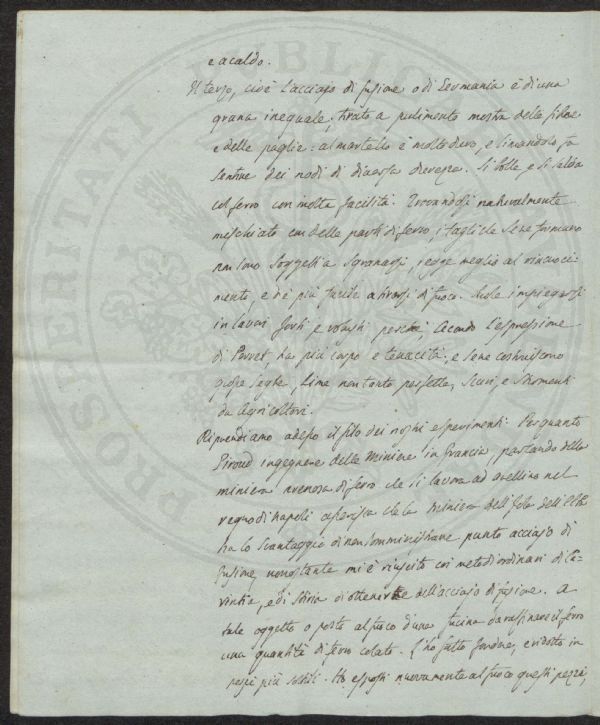 e a caldo.
Il terzo, cioè l'acciajo di fusione o di Germania è di una
grana ineguale; tirato a pulimento mostra delle fibre
e delle paglie: al martello è molto duro, e limandolo fa
sentire dei nodi di diversa durezza. Si bolle e si salda
col ferro con molta facilità. Trovandosi naturalmente
meschiato con delle parti di ferro, i tagli che se ne formano
non sono soggetti a sgranarsi, regge meglio al rincuoci-
mento, ed è più facile a tirarsi di fuoco. Suole impiegarsi
in lavori forti e robusti perchè, secondo l'espressione
di Perret, ha più corpo e tenacità; e se ne costruiscono
grosse seghe, lime non tanto perfette, scuri, e stromenti
da Agricoltori.
Riprendiamo adesso il filo dei nostri esperimenti. Per quanto
ingegnere delle Miniere in Francia, parlando della
miniera arenosa di ferro che si lavora ad Avellino nel
regno di Napoli asserisca che la miniera dell'Isola dell'Elba
ha lo svantaggio di non somministrare punto acciajo di
fusione, nonostante mi è riuscito coi metodi ordinarj di Ca-
rintia, e di Stiria di ottenere dell'acciajo di fusione. A
tale oggetto o posto al fuoco d'una fucina da raffinare il ferro
una quantità di ferro colato. L'ho fatto fondere, e ridotto in
pezzi più sottili. Ho esposti nuovamente al fuoco questi pezzi,